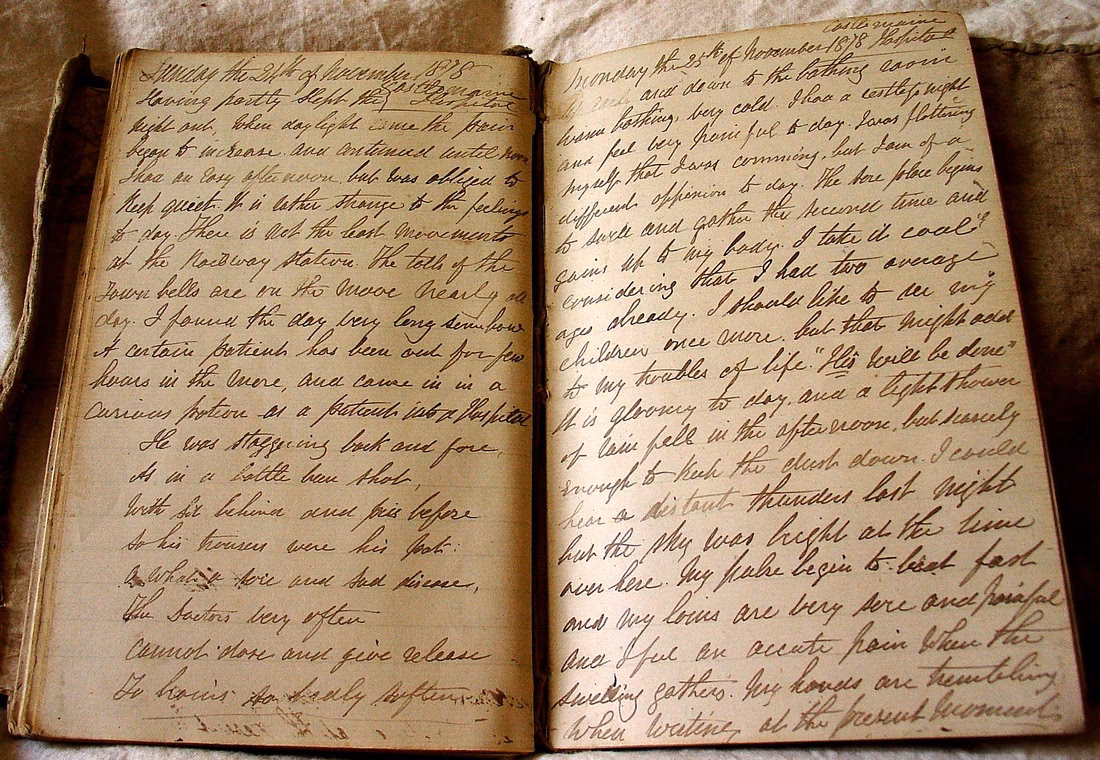 Sunday the 24th of November 1878
Castlemaine
Having partly slept the Hospital
night out, When daylight came the pain
began to increase and continued until noon
I had an Easy afternoon, but was obliged to
Keep queet. It is rather strange to the feelings
to day. There is not the least movements
at the Railway station. The tolls of the
Town bells are on the move nearly all
day. I found the day very long somehow
A certain patient has been out for few
hours in the more, and came in in a
curious potion as a patient into a Hospital
He was staggering back and fore,
As in a battle been shot,
With Sit behind and piss before
So his trousers were his pot:
O What a sore and sad disease,
The Doctors very often
Cannot dose and give release
To brains so badly soften
Castlemaine
Monday the 25th of November 1878 Hospital
and down to the bathing room
warm bathing, very cold. I had a restless night
and feel very painful to day. I was flattering
myself that I was comming, but I am of a
different oppinion to day. The sore place begins
to swell and gather the second time and
gains up to my body. I take it cool
considering that I had two average
ages already. I should like to see my
children once more, but that might add
to my troubles of life. "His Will be done"
It is gloomy to day, and a light shower
of rain fell in the afternoon, but scarcely
Enough to Keep the dust down. I could
hear a distant thunders last night
but the sky was bright at the time
over here. My pulse begin to beat fast
and my loins are very sore and painful
and I feel an accute pain When the
swelling gathers. My hands are trembling
When writing at the present moment